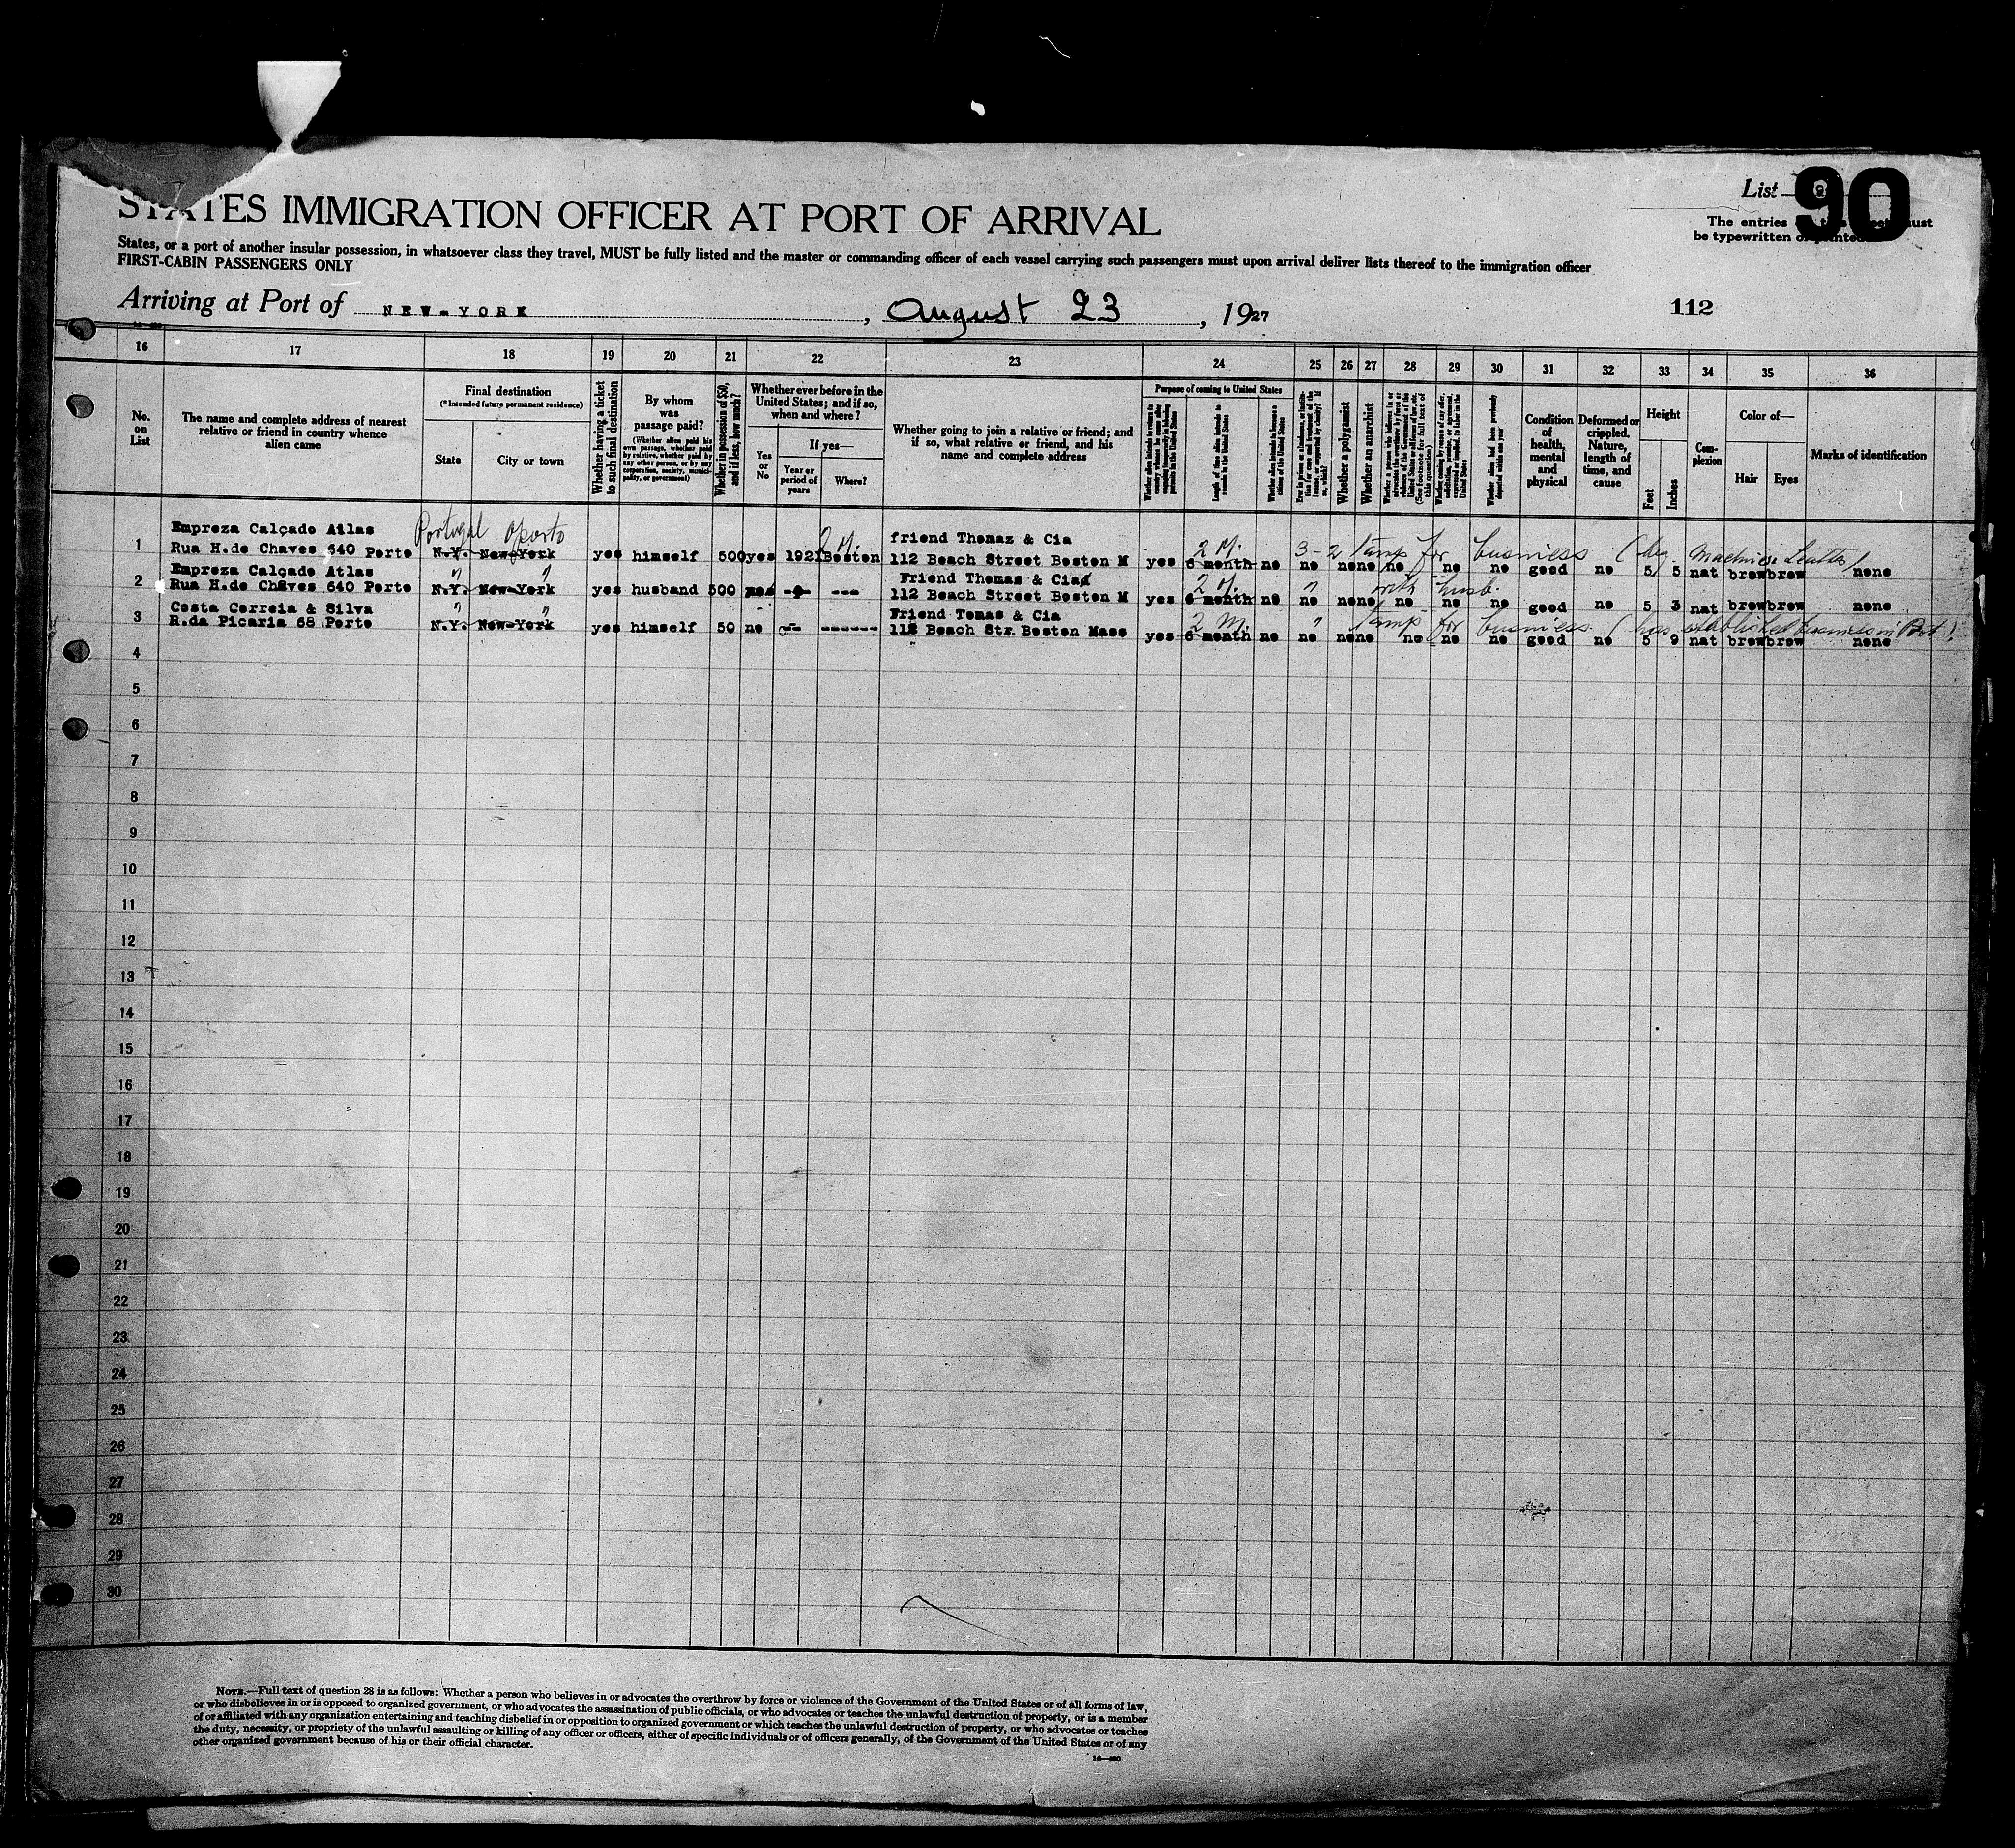 List 90
STATES IMMIGRATION OFFICER AT PORT OF ARRIVAL
The entries must
be typewritten or printed
States, or a port of another insular possession, in whatsoever class they travel, MUST be fully listed and the master or commanding officer of each vessel carrying such passengers must upon arrival deliver lists thereof to the immigration officer
FIRST-CABIN PASSENGERS ONLY
Arriving at Port of NEW-YORK, August 23, 1927
112
16 17 18 19 20 21 22 23 24 25 26 27 28 29 30 31 32 33 34 35 36
No. on List
The name and complete address of nearest relative or friend in country whence alien came
Final destination
(*Intended future permanent residence)
State
City or town
Whether having a ticket to such final destination
By whom was passage paid?
(Whether alien paid his own passage, whether paid by relative, whether paid by any other person, or by any corporation, society, municipality, or government)
Whether in possession of $50, and if less, how much?
Whether ever before in the United States; and if so, when and where?
Yes or No
If yes—
Year or period of years
Where?
Whether going to join a relative or friend; and if so, what relative or friend, and his name and complete address
Purpose of coming to United States
Length of time alien intends to remain in the United States
Whether alien intends to become a citizen of the United States
Whether a polygamist
Whether an anarchist
(See footnote for full text of this question)
Whether alien had been previously deported within one year
Condition of health, mental and physical
Deformed or crippled. Nature, length of time, and cause
Height
Feet
Inches
Complexion
Color of—
Hair
Eyes
Marks of identification
Empreza Calçado Atlas Portugal Oporto 2 M. friend Thomaz & Cia 2 M. 3-2 Temp for business
1 Rua H.de Chaves 640 Porto N.Y. New-York yes himself 500 yes 1921 Boston 112 Beach Street Boston M yes 6 month no no none no no no good no 5 5 nat brow brow none
Empreza Calçado Atlas " " Friend Thomas & Cia 2 M. " with husb.
2 Rua H.de Chaves 640 Porto N.Y. New-York yes husband 500 --- 112 Beach Street Boston M yes 6 month no no none no no no good no 5 3 nat brow brow none
Costa Correia & Silva " " Friend Tomas & Cia 2 M. " Temp for business (has established business in Port.)
3 R.da Picaria 68 Porto N.Y. New-York yes himself 50 no -- ------ 112 Beach Str. Boston Mass yes 6 month no no none no no no good no 5 9 nat brow brow none
4
5
6
7
8
9
10
11
12
13
14
15
16
17
18
19
20
21
22
23
24
25
26
27
28
29
30
NOTE.—Full text of question 28 is as follows: Whether a person who believes in or advocates the overthrow by force or violence of the Government of the United States or of all forms of law,
or who disbelieves in or is opposed to organized government, or who advocates the assassination of public officials, or who advocates or teaches the unlawful destruction of property, or is a member
of or affiliated with any organization entertaining and teaching disbelief in or opposition to organized government or which teaches the unlawful destruction of property, or who advocates or teaches
the duty, necessity, or propriety of the unlawful assaulting or killing of any officer or officers, either of specific individuals or of officers generally, of the Government of the United States or of any
other organized government because of his or their official character.